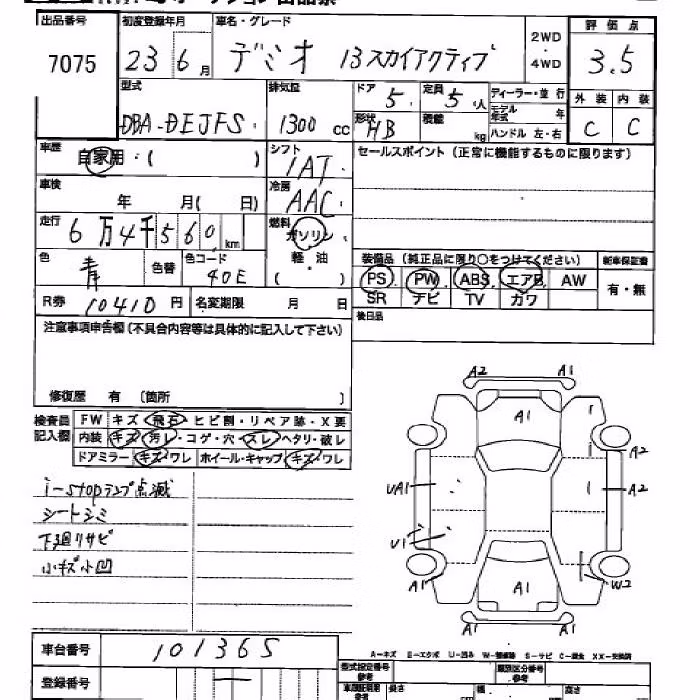 出品番号 初度登録年月 車名・グレード 評価点
7075 23 6月 デミオ 13スカイアクティブ 2WD・4WD 3.5
型式 排気量 ドア 5. 定員 5人 ディーラー・並行 外装 内装
DBA-DEJFS 1300cc 形状 HB 積載 kg モデル年式 年 ハンドル 左・右 C C
車歴 自家用・( ) シフト 1AT セールスポイント(正常に機能するものに限ります)
車検 年 月( 日) 冷房 AAC
走行 6万4千560km 燃料 ガソリン・軽油 ( )
装備品(純正品に限り○をつけてください) 新車保証書
色 青 色替 色コード 40E PS PW ABS エアB AW 有・無
SR ナビ TV カワ
R券 10410円 名変期限 月 日 後日品
注意事項申告欄(不具合内容等は具体的に記入して下さい)
修復歴 有 〔箇所 〕
検査員記入欄 FW キズ・飛石・ヒビ割・リペア跡・X要
内装 キズ・汚レ・コゲ・穴・スレ・ヘタリ・破レ
ドアミラー キズ・ワレ ホイール・キャップ キズ・ワレ
i-stopランプ点滅
シートシミ
下廻リサビ
小キズ小凹
A2 A1
A1
A2
UA1 A2
U1
A1 W2
A1
A1 A1
A-キズ E-エクボ U-凹み W-補修跡 S-サビ C-腐食 XX-交換済
車台番号 101365
登録番号
型式指定番号 参考 類別区分番号 参考
長さ 幅 高さ